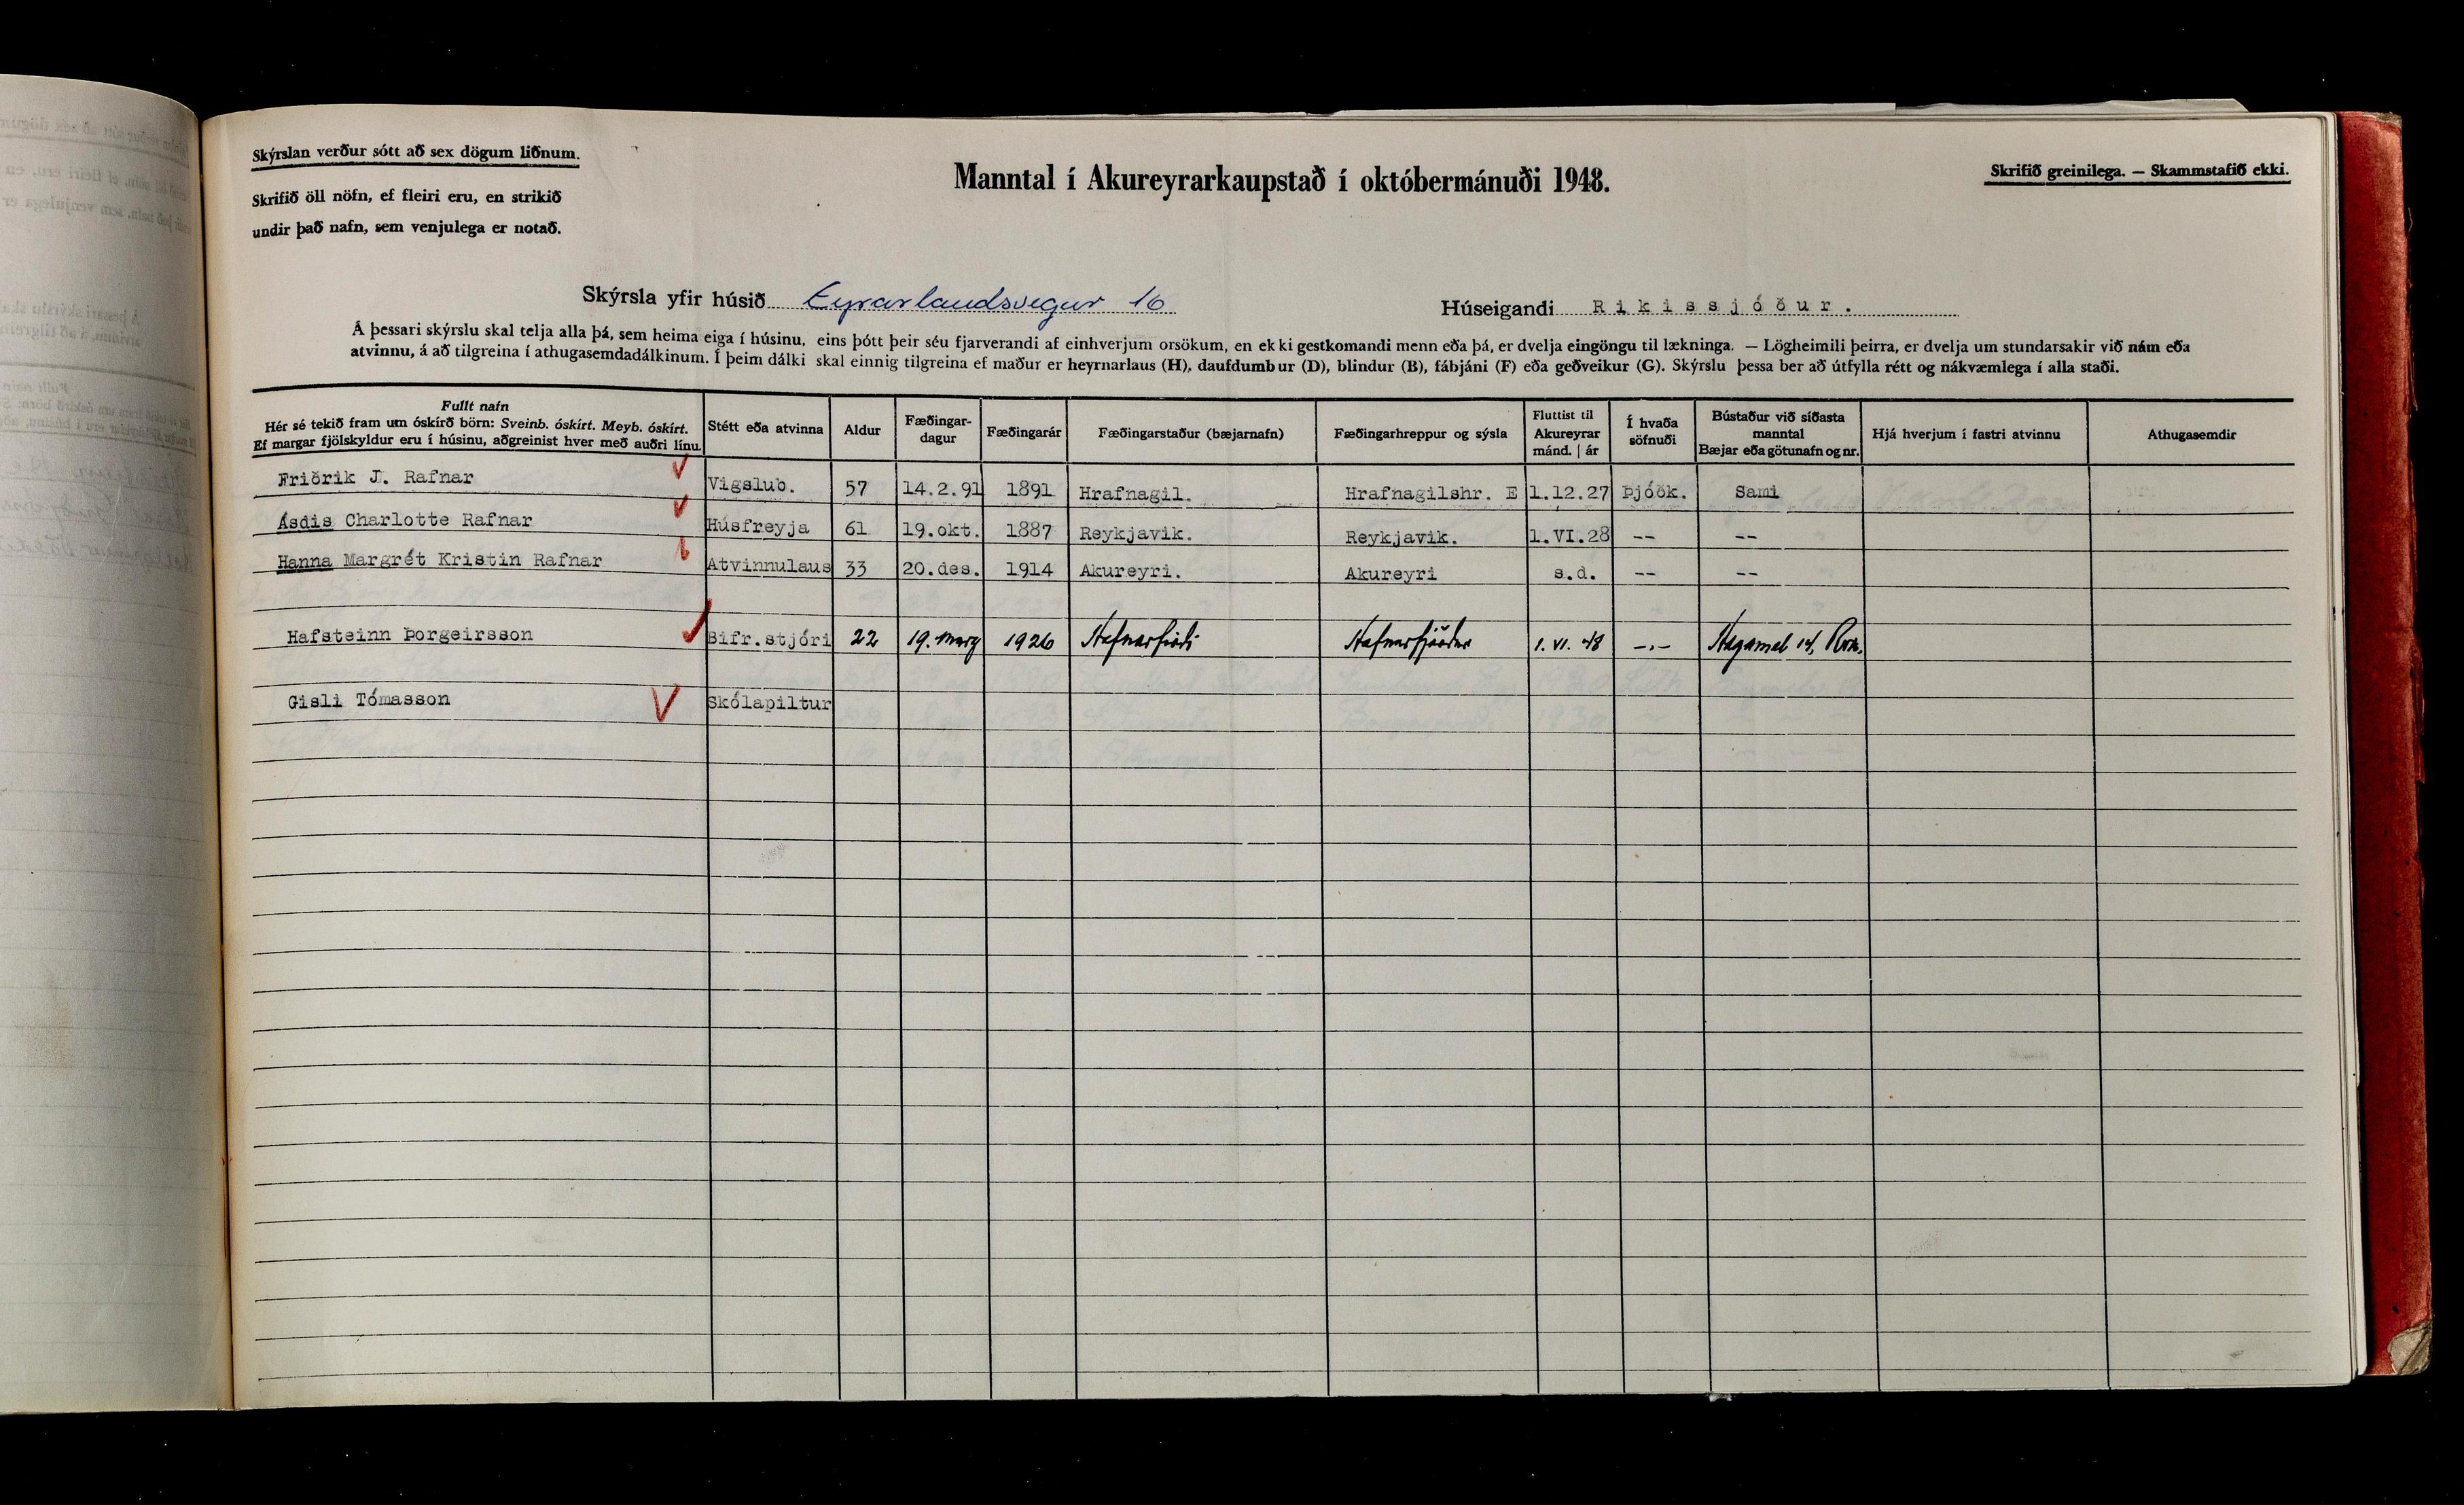 Skýrslan verður sótt að sex dögum liðnum.
Skrifið öll nöfn, ef fleiri eru, en strikið
undir það nafn, sem venjulega er notað.
Manntal í Akureyrarkaupstað í októbermánuði 1948.
Skrifið greinilega. — Skammstafið ekki.
Skýrsla yfir húsið Eyrarlandsvegur 16
Húseigandi Rikissjóður.
Á þessari skýrslu skal telja alla þá, sem heima eiga í húsinu, eins þótt þeir séu fjarverandi af einhverjum orsökum, en ekki gestkomandi menn eða þá, er dvelja eingöngu til lækninga. — Lögheimili þeirra, er dvelja um stundarsakir við nám eða
atvinnu, á að tilgreina í athugasemdadálkinum. Í þeim dálki skal einnig tilgreina ef maður er heyrnarlaus (H), daufdumbur (D), blindur (B), fábjáni (F) eða geðveikur (G). Skýrslu þessa ber að útfylla rétt og nákvæmlega í alla staði.
Fullt nafn
Hér sé tekið fram um óskírð börn: Sveinb. óskírt. Meyb. óskírt.
Ef margar fjölskyldur eru í húsinu, aðgreinist hver með auðri línu.
Stétt eða atvinna
Aldur
Fæðingar-
dagur
Fæðingarár
Fæðingarstaður (bæjarnafn)
Fæðingarhreppur og sýsla
Fluttist til
Akureyrar
mánd. | ár
Í hvaða
söfnuði
Bústaður við síðasta
manntal
Bæjar eða götunafn og nr.
Hjá hverjum í fastri atvinnu
Athugasemdir
Friðrik J. Rafnar Vigslub. 57 14.2.91 1891 Hrafnagil. Hrafnagilshr. E 1.12.27 Þjóðk. Sami
Ásdis Charlotte Rafnar Húsfreyja 61 19.okt. 1887 Reykjavik. Reykjavik. 1.VI.28 -- --
Hanna Margrét Kristin Rafnar Atvinnulaus 33 20.des. 1914 Akureyri. Akureyri s.d. -- --
Hafsteinn Þorgeirsson Bifr.stjóri 22 19. marz 1926 Hafnarfirði Hafnarfjörður 1. VI. 48 -.- Hagamel 14, Rvk.
Gisli Tómasson Skólapiltur